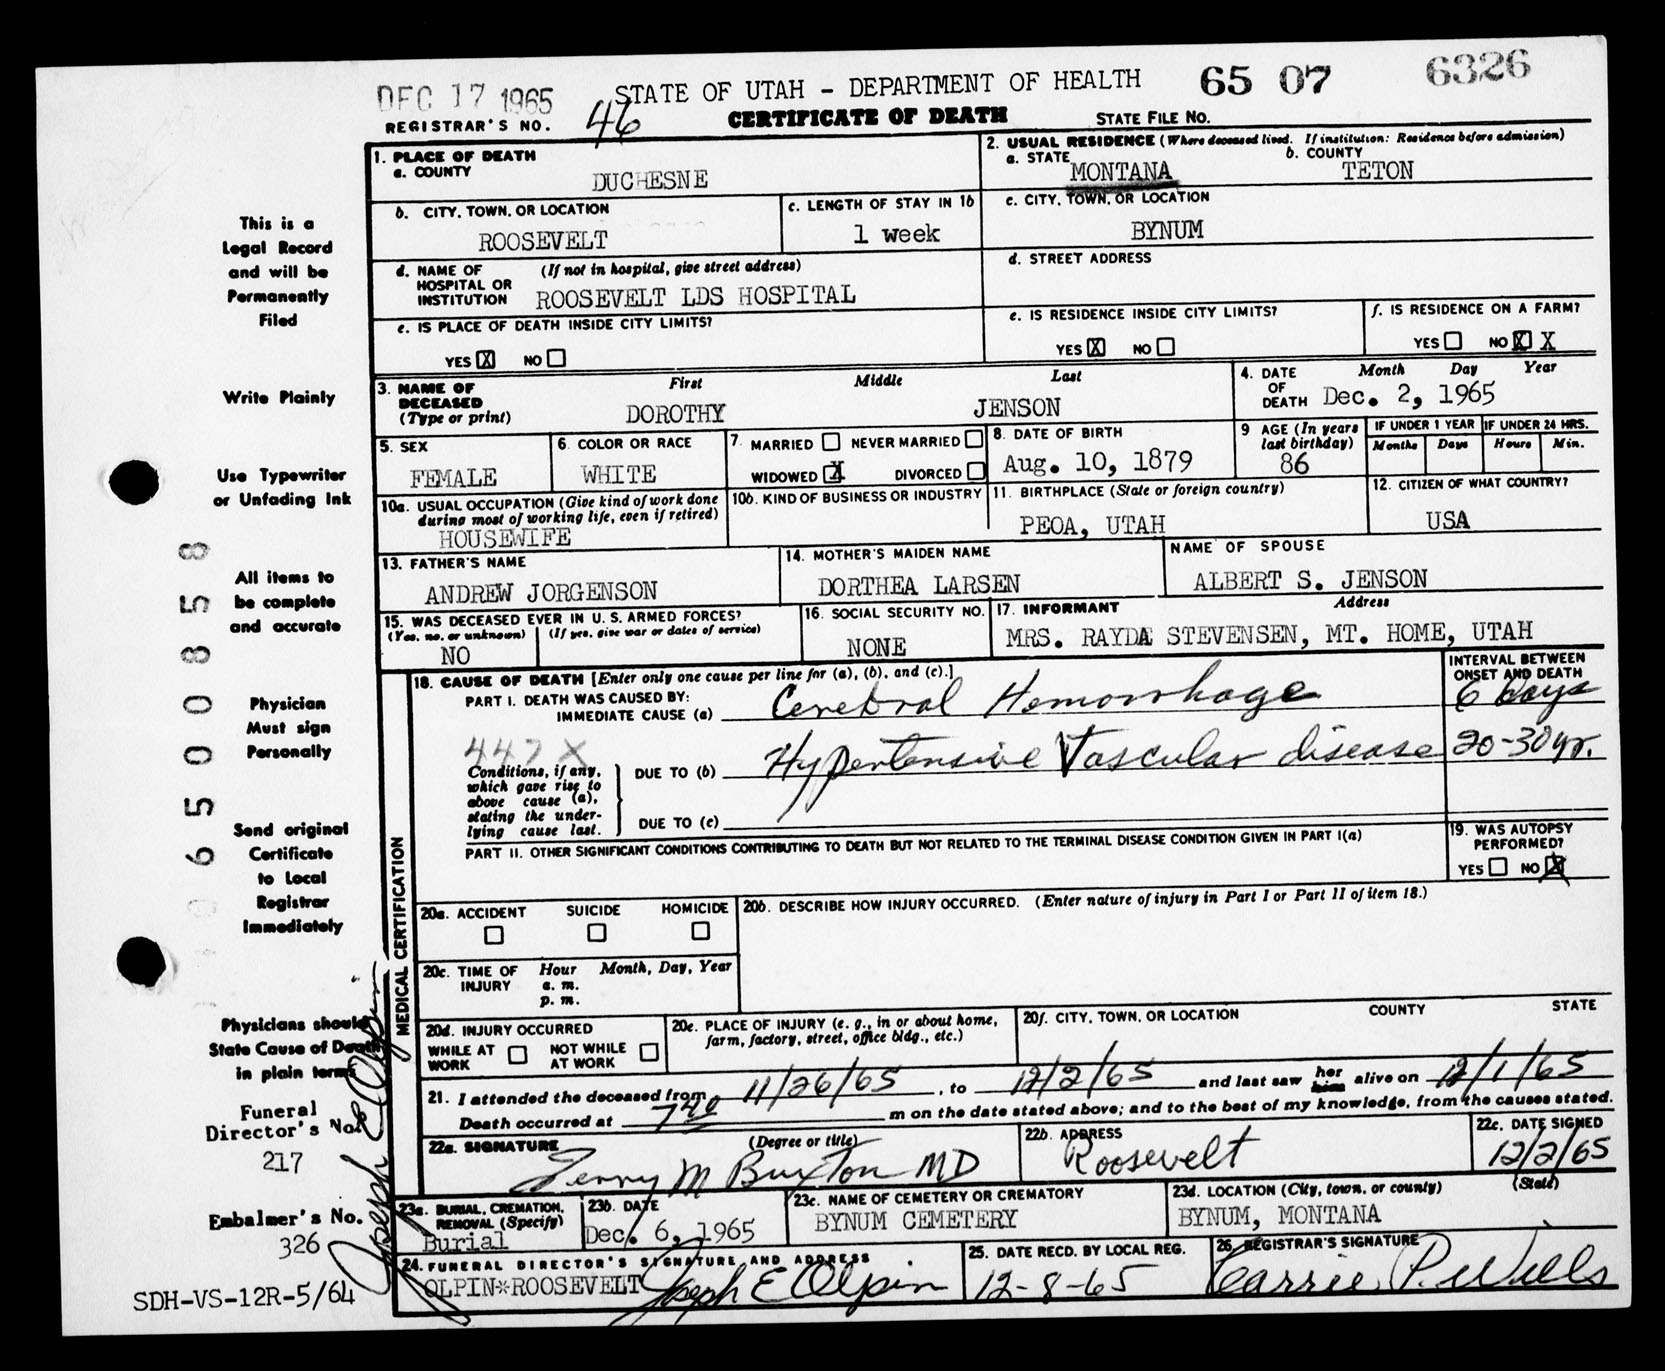 DEC 17 1965 STATE OF UTAH - DEPARTMENT OF HEALTH 65 07 6326
REGISTRAR'S NO. 46 CERTIFICATE OF DEATH STATE FILE NO.
1. PLACE OF DEATH
a. COUNTY
DUCHESNE
2. USUAL RESIDENCE (Where deceased lived. If institution: Residence before admission)
a. STATE MONTANA b. COUNTY TETON
b. CITY, TOWN, OR LOCATION
ROOSEVELT
c. LENGTH OF STAY IN 1b
1 week
c. CITY, TOWN, OR LOCATION
BYNUM
d. NAME OF HOSPITAL OR INSTITUTION (If not in hospital, give street address)
ROOSEVELT LDS HOSPITAL
d. STREET ADDRESS
e. IS PLACE OF DEATH INSIDE CITY LIMITS?
YES X NO
e. IS RESIDENCE INSIDE CITY LIMITS?
YES X NO
f. IS RESIDENCE ON A FARM?
YES NO X X
3. NAME OF DECEASED (Type or print)
First Middle Last
DOROTHY JENSON
4. DATE OF DEATH
Month Day Year
Dec. 2, 1965
5. SEX
FEMALE
6. COLOR OR RACE
WHITE
7. MARRIED NEVER MARRIED
WIDOWED X DIVORCED
8. DATE OF BIRTH
Aug. 10, 1879
9 AGE (In years last birthday)
86
IF UNDER 1 YEAR
Months Days
IF UNDER 24 HRS.
Hours Min.
10a. USUAL OCCUPATION (Give kind of work done during most of working life, even if retired)
HOUSEWIFE
10b. KIND OF BUSINESS OR INDUSTRY
11. BIRTHPLACE (State or foreign country)
PEOA, UTAH
12. CITIZEN OF WHAT COUNTRY?
USA
13. FATHER'S NAME
ANDREW JORGENSON
14. MOTHER'S MAIDEN NAME
DORTHEA LARSEN
NAME OF SPOUSE
ALBERT S. JENSON
15. WAS DECEASED EVER IN U. S. ARMED FORCES?
(Yes, no, or unknown) (If yes, give war or dates of service)
NO
16. SOCIAL SECURITY NO.
NONE
17. INFORMANT Address
MRS. RAYDA STEVENSEN, MT. HOME, UTAH
MEDICAL CERTIFICATION
18. CAUSE OF DEATH [Enter only one cause per line for (a), (b), and (c).]
INTERVAL BETWEEN ONSET AND DEATH
PART I. DEATH WAS CAUSED BY:
IMMEDIATE CAUSE (a) Cerebral Hemorrhage 6 days
447X
Conditions, if any, which gave rise to above cause (a), stating the underlying cause last.
DUE TO (b) Hypertensive Vascular disease 20-30 yr.
DUE TO (c)
PART II. OTHER SIGNIFICANT CONDITIONS CONTRIBUTING TO DEATH BUT NOT RELATED TO THE TERMINAL DISEASE CONDITION GIVEN IN PART I(a)
19. WAS AUTOPSY PERFORMED?
YES NO X
20a. ACCIDENT SUICIDE HOMICIDE
20b. DESCRIBE HOW INJURY OCCURRED. (Enter nature of injury in Part I or Part II of item 18.)
20c. TIME OF INJURY Hour Month, Day, Year
a. m.
p. m.
20d. INJURY OCCURRED
WHILE AT WORK NOT WHILE AT WORK
20e. PLACE OF INJURY (e. g., in or about home, farm, factory, street, office bldg., etc.)
20f. CITY, TOWN, OR LOCATION COUNTY STATE
21. I attended the deceased from 11/26/65, to 12/2/65 and last saw her him alive on 12/1/65
Death occurred at 740 m on the date stated above; and to the best of my knowledge, from the causes stated.
22a. SIGNATURE (Degree or title)
Terry M Buxton MD
22b. ADDRESS
Roosevelt
22c. DATE SIGNED
12/2/65
23a. BURIAL, CREMATION, REMOVAL (Specify)
Burial
23b. DATE
Dec. 6, 1965
23c. NAME OF CEMETERY OR CREMATORY
BYNUM CEMETERY
23d. LOCATION (City, town, or county) (State)
BYNUM, MONTANA
24. FUNERAL DIRECTOR'S SIGNATURE AND ADDRESS
OLPIN*ROOSEVELT Joseph E Olpin
25. DATE RECD. BY LOCAL REG.
12-8-65
26. REGISTRAR'S SIGNATURE
Carrie P. Wills
This is a
Legal Record
and will be
Permanently
Filed
Write Plainly
Use Typewriter
or Unfading Ink
All items to
be complete
and accurate
Physician
Must sign
Personally
Send original
Certificate
to Local
Registrar
Immediately
Physicians should
State Cause of Death
in plain terms
Funeral
Director's No.
217
Embalmer's No.
326
SDH-VS-12R-5/64
Joseph E Olpin
06500858